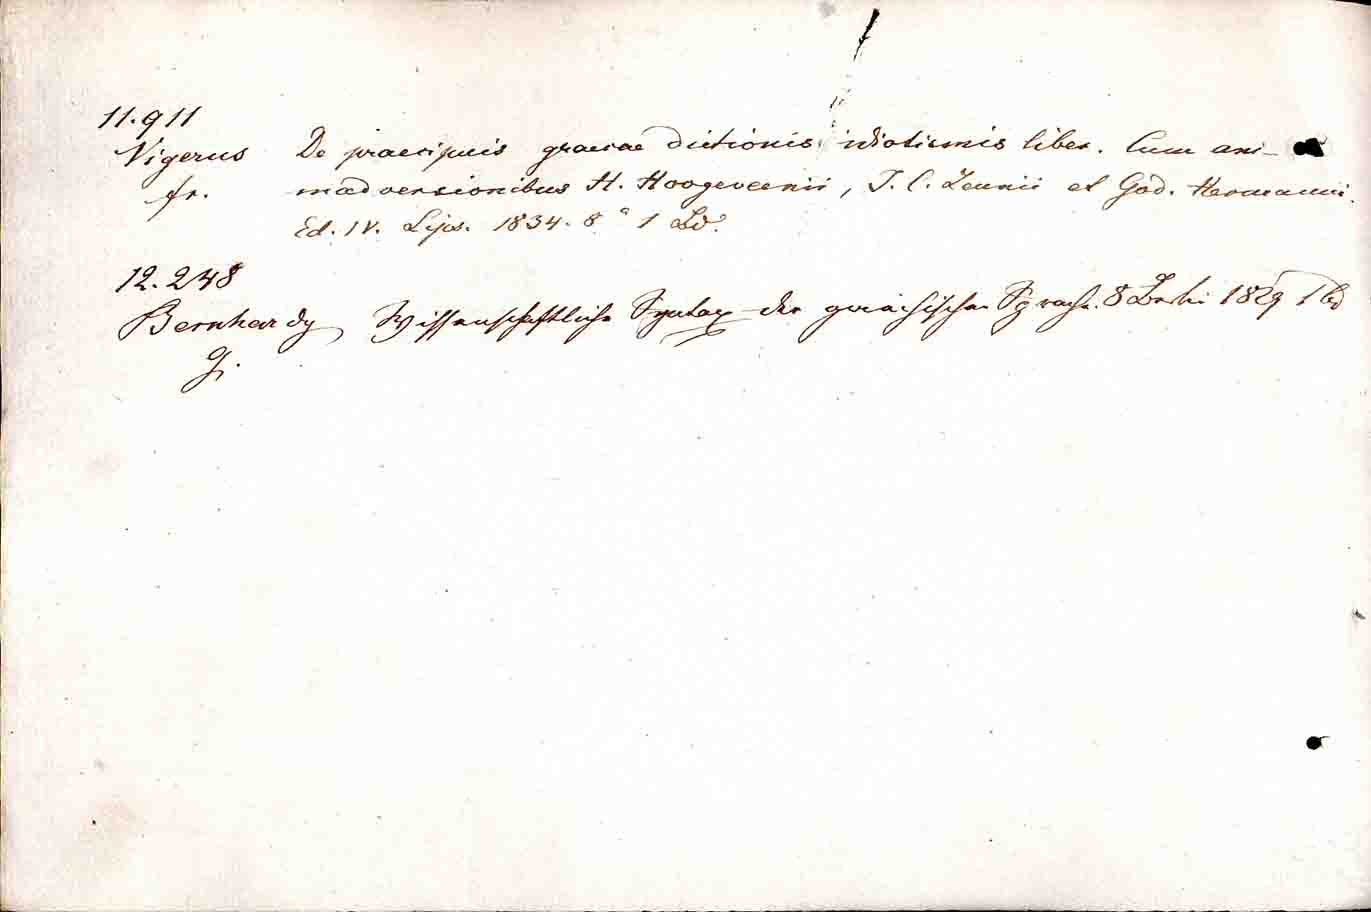 11.911
Vigerus De praecipuis graecae dictionis idiotismis liber. Cum ani-
fr. madversionibus H. Hoogeveenii, J. C. Zeunii et God. Hermanni.
Ed. IV. Lips. 1834. 8° 1 Bd.
12.248
Bernhardy Wissenschaftliche Syntax der griechischen Sprache. 8 Berlin 1829 1 Bd
G.